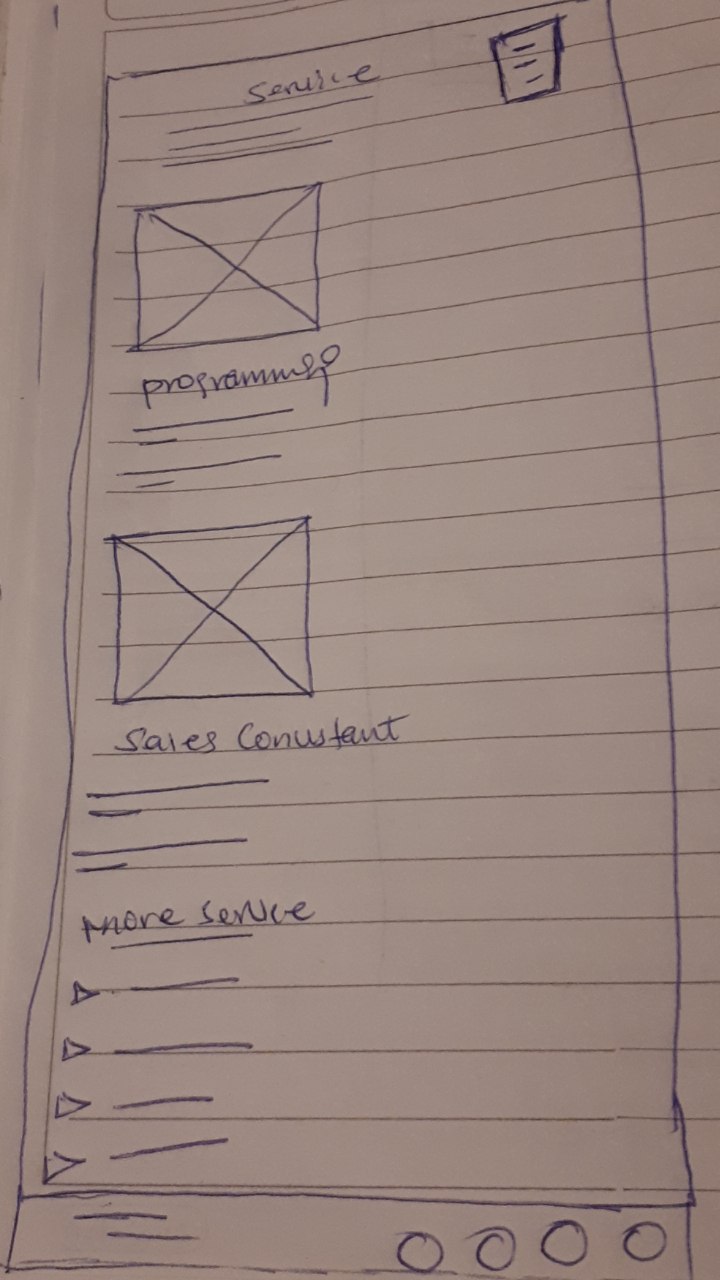 Service
programming
Sales Conustant
more service